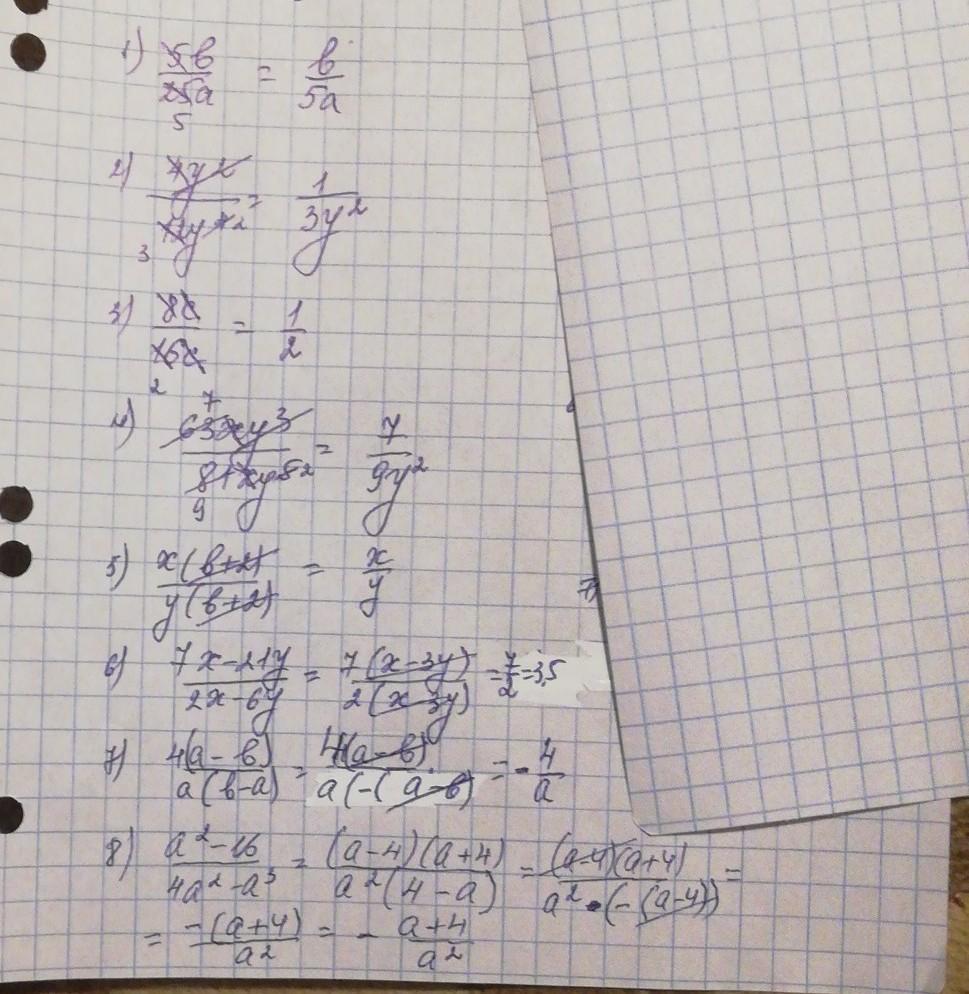 1) 5b/25a = b/5a
5
2) 4y²/12y⁴ ² = 1/3y²
3
3) 8c/16c = 1/2
2
7
4) 63xy³/81xy⁵ ² = 7/9y²
9
5) x(b+2)/y(b+2) = x/y
7)
6) 7x-21y/2x-6y = 7(x-3y)/2(x-3y) = 7/2 = 3,5
7) 4(a-b)/a(b-a) = 4(a-b)/a(-(a-b) = -4/a
8) a²-16/4a²-a³ = (a-4)(a+4)/a²(4-a) = (a-4)(a+4)/a²·(-(a-4)) =
= -(a+4)/a² = - a+4/a²